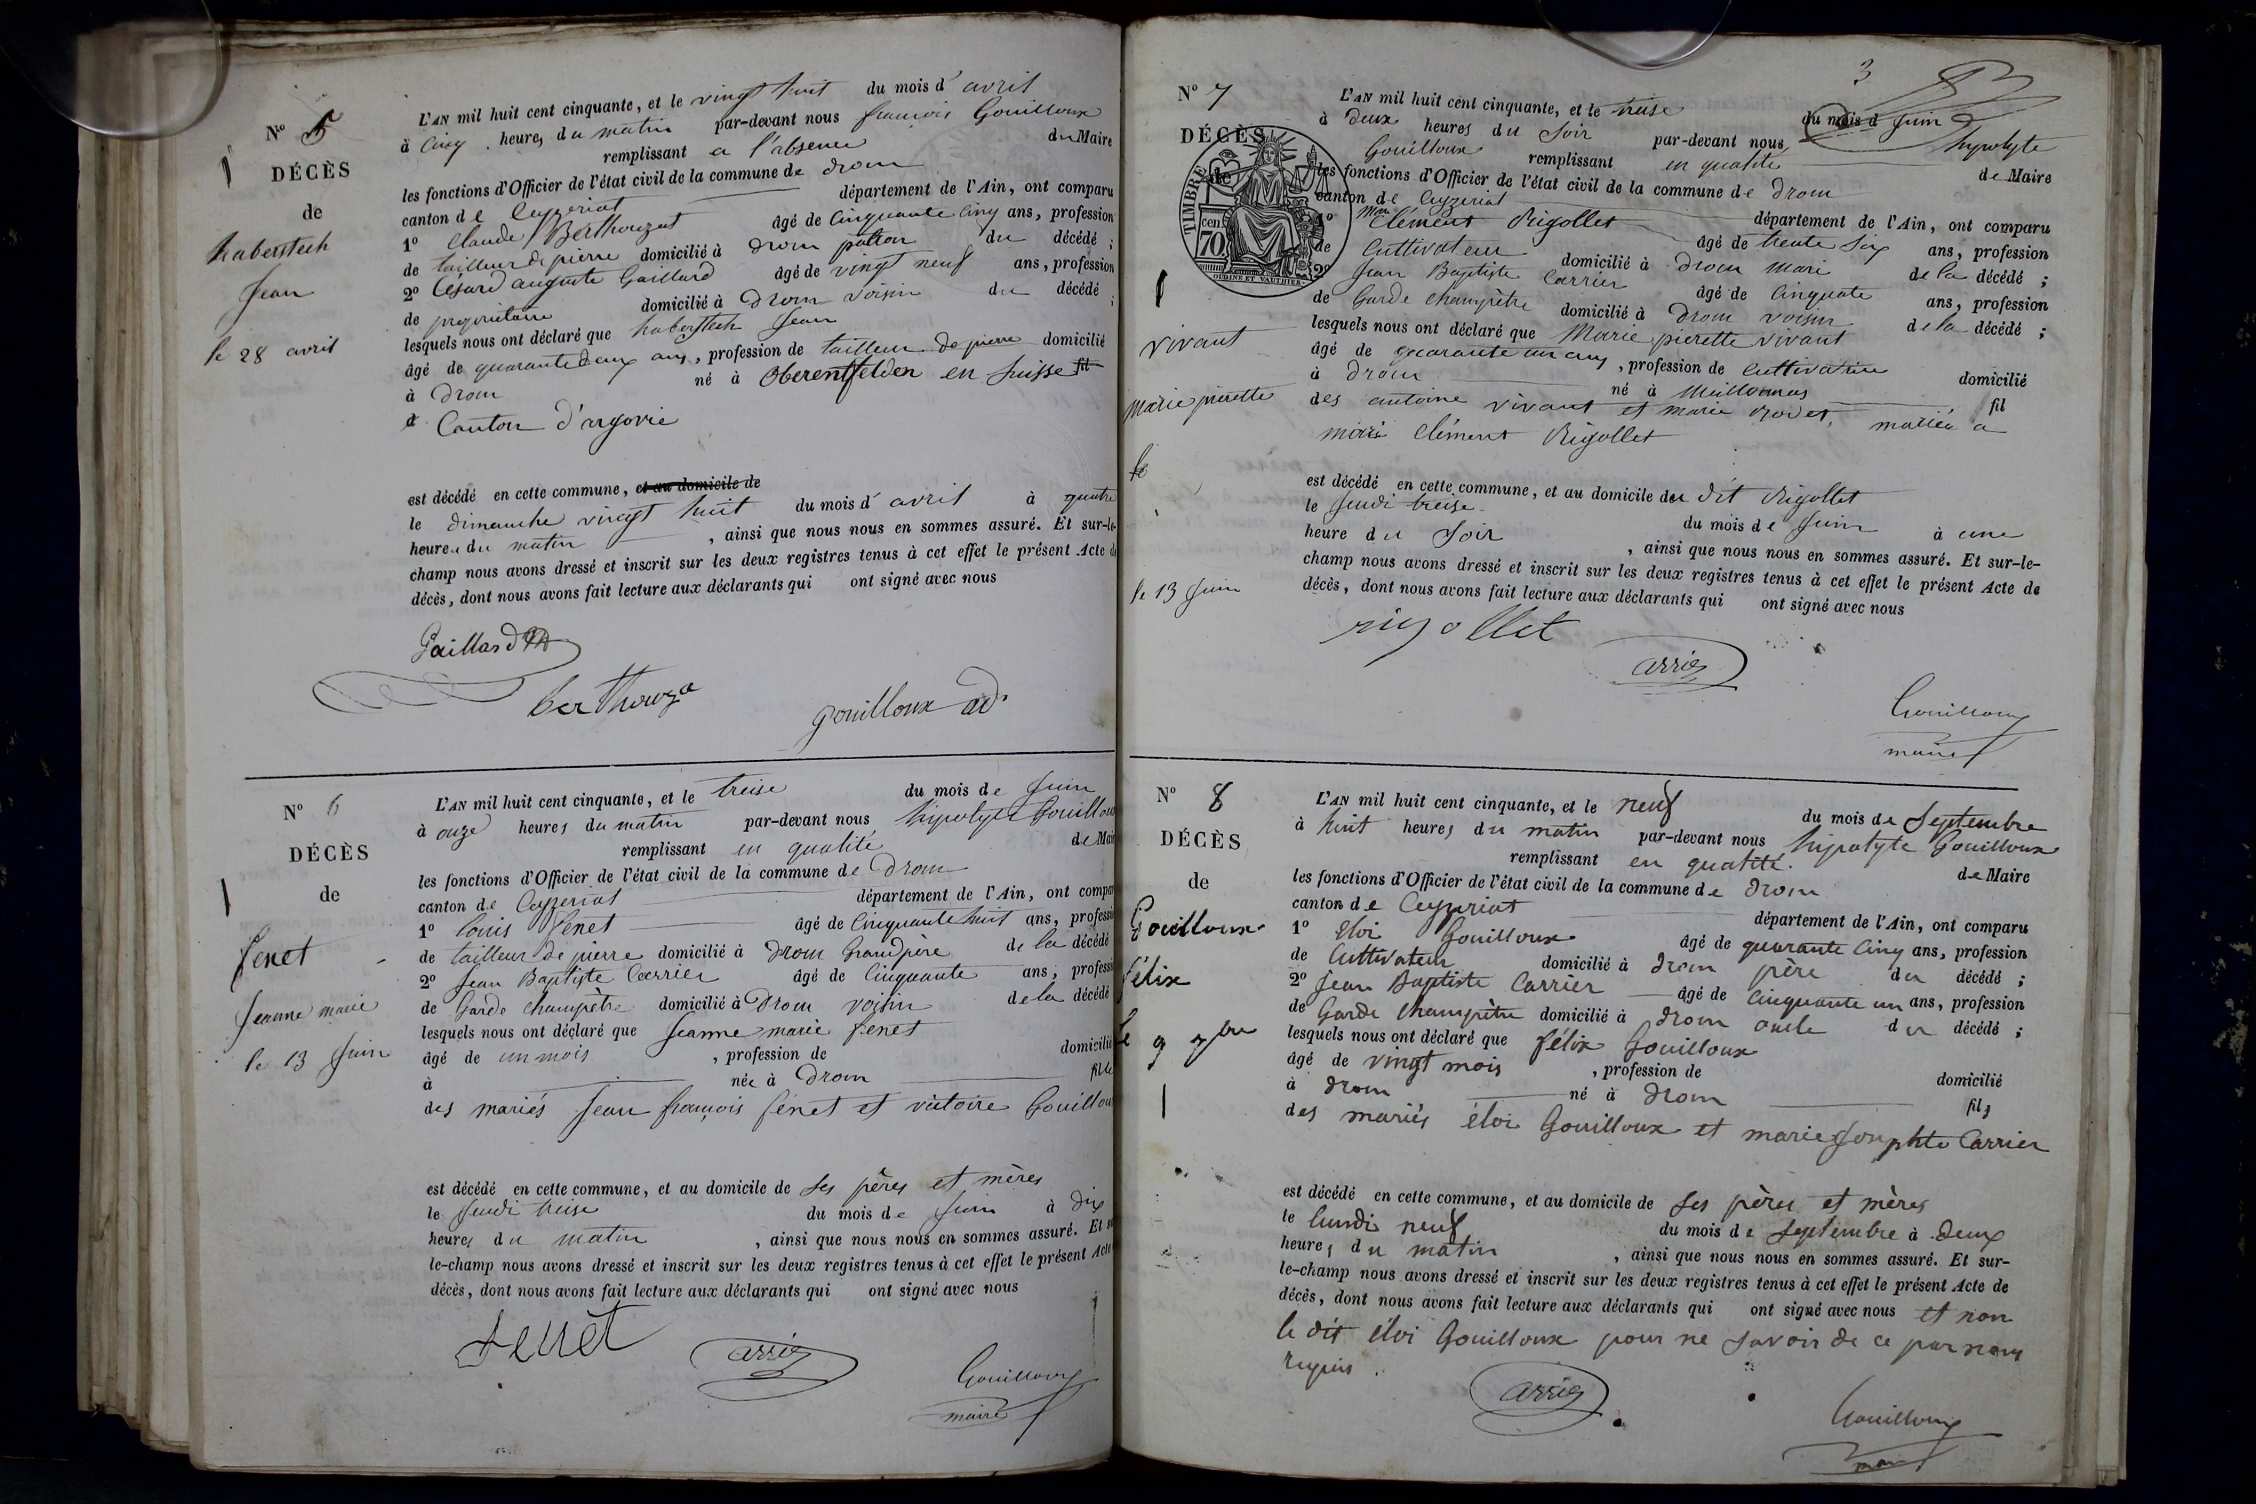 Nº 5
DÉCÈS
de
haberstech
Jean
le 28 avril
L'AN mil huit cent cinquante, et le vingt huit du mois d'avril
à Cinq heures du matin par-devant nous françois Gouilloux
remplissant a l'absence du Maire
les fonctions d'Officier de l'état civil de la commune de drom
canton de Ceyzeriat département de l'Ain, ont comparu
1º Claude Berthouzat âgé de Cinquante Cinq ans, profession
de tailleur de pierre domicilié à drom patron du décédé ;
2º Césard auguste Gaillard âgé de vingt neuf ans, profession
de propriétaire domicilié à Drom voisin du décédé ;
lesquels nous ont déclaré que haberstech Jean
âgé de quarante deux ans, profession de tailleur de pierre domicilié
à Drom né à Oberentfelden en Suisse fil
d Canton d'argovie
est décédé en cette commune, et au domicile de
le dimanche vingt huit du mois d'avril à quatre
heures du matin, ainsi que nous nous en sommes assuré. Et sur-le-
champ nous avons dressé et inscrit sur les deux registres tenus à cet effet le présent Acte de
décès, dont nous avons fait lecture aux déclarants qui ont signé avec nous
Gaillard
berthouza
gouilloux ad.
Nº 6
DÉCÈS
de
fenet
Jeanne marie
le 13 Juin
L'AN mil huit cent cinquante, et le treise du mois de Juin
à onze heures du matin par-devant nous hipolyte Gouilloux
remplissant en qualité de Mair
les fonctions d'Officier de l'état civil de la commune de Drom
canton de Ceyzeriat département de l'Ain, ont compar
1º louis fenet âgé de Cinquante huit ans, professi
de tailleur de pierre domicilié à Drom Grandpère de la décédé
2º Jean Baptiste Carrier âgé de Cinquante ans, professi
de Garde champètre domicilié à Drom voisin de la décédé
lesquels nous ont déclaré que Jeanne marie fenet
âgé de un mois, profession de domicilié
à née à Drom fille
des mariés Jean françois fénet et victoire Gouillou
est décédé en cette commune, et au domicile de ses pères et mères
le Jeudi treise du mois de Juin à dix
heures du matin, ainsi que nous nous en sommes assuré. Et su
le-champ nous avons dressé et inscrit sur les deux registres tenus à cet effet le présent Acte
décès, dont nous avons fait lecture aux déclarants qui ont signé avec nous
fenet
arrier
Gouilloux
maire
3
Nº 7
DÉCÈS
de
TIMBRE
70 cen
OUDINÉ ET VAUTHIER
vivant
Marie pierette
le
le 13 Juin
L'AN mil huit cent cinquante, et le treise du mois d Juin
à deux heures du Soir par-devant nous hypolyte
Gouilloux remplissant en qualité de Maire
les fonctions d'Officier de l'état civil de la commune de Drom
canton de Ceyzeriat département de l'Ain, ont comparu
1º Clément Rigollet âgé de trente Six ans, profession
de Cultivateur domicilié à Drom Mari de la décédé ;
2º Jean Baptiste Carrier âgé de Cinquate ans, profession
de Garde champètre domicilié à Drom voisin de la décédé ;
lesquels nous ont déclaré que Marie pierette vivant
âgé de quarante un ans, profession de Cultivatrice domicilié
à Drom né à Meillonnas fil
des antoine vivant et marie rodet, mariée a
Clément Rigollet
est décédé en cette commune, et au domicile du dit Rigollet
le Jeudi treise du mois de Juin à une
heure du Soir, ainsi que nous nous en sommes assuré. Et sur-le-
champ nous avons dressé et inscrit sur les deux registres tenus à cet effet le présent Acte de
décès, dont nous avons fait lecture aux déclarants qui ont signé avec nous
rigollet
arrier
Gouilloux
maire
Nº 8
DÉCÈS
de
Gouilloux
félix
le 9 7bre
L'AN mil huit cent cinquante, et le neuf du mois de Septembre
à huit heures du matin par-devant nous hipolyte Gouilloux
remplissant en qualité de Maire
les fonctions d'Officier de l'état civil de la commune de Drom
canton de Ceyzeriat département de l'Ain, ont comparu
1º Eloi Gouilloux âgé de quarante Cinq ans, profession
de Cultivateur domicilié à Drom père du décédé ;
2º Jean Baptiste Carrier âgé de Cinquante un ans, profession
de Garde champètre domicilié à Drom oncle du décédé ;
lesquels nous ont déclaré que félix Gouilloux
âgé de vingt mois, profession de domicilié
à Drom né à Drom fils
des mariés éloi Gouilloux et marie Carrier
est décédé en cette commune, et au domicile de ses pères et mères
le lundi neuf du mois de Septembre à Deux
heures du matin, ainsi que nous nous en sommes assuré. Et sur-
le-champ nous avons dressé et inscrit sur les deux registres tenus à cet effet le présent Acte de
décès, dont nous avons fait lecture aux déclarants qui ont signé avec nous et non
le dit éloi Gouilloux pour ne savoir de ce par nous
requis.
arrier
Gouilloux
maire